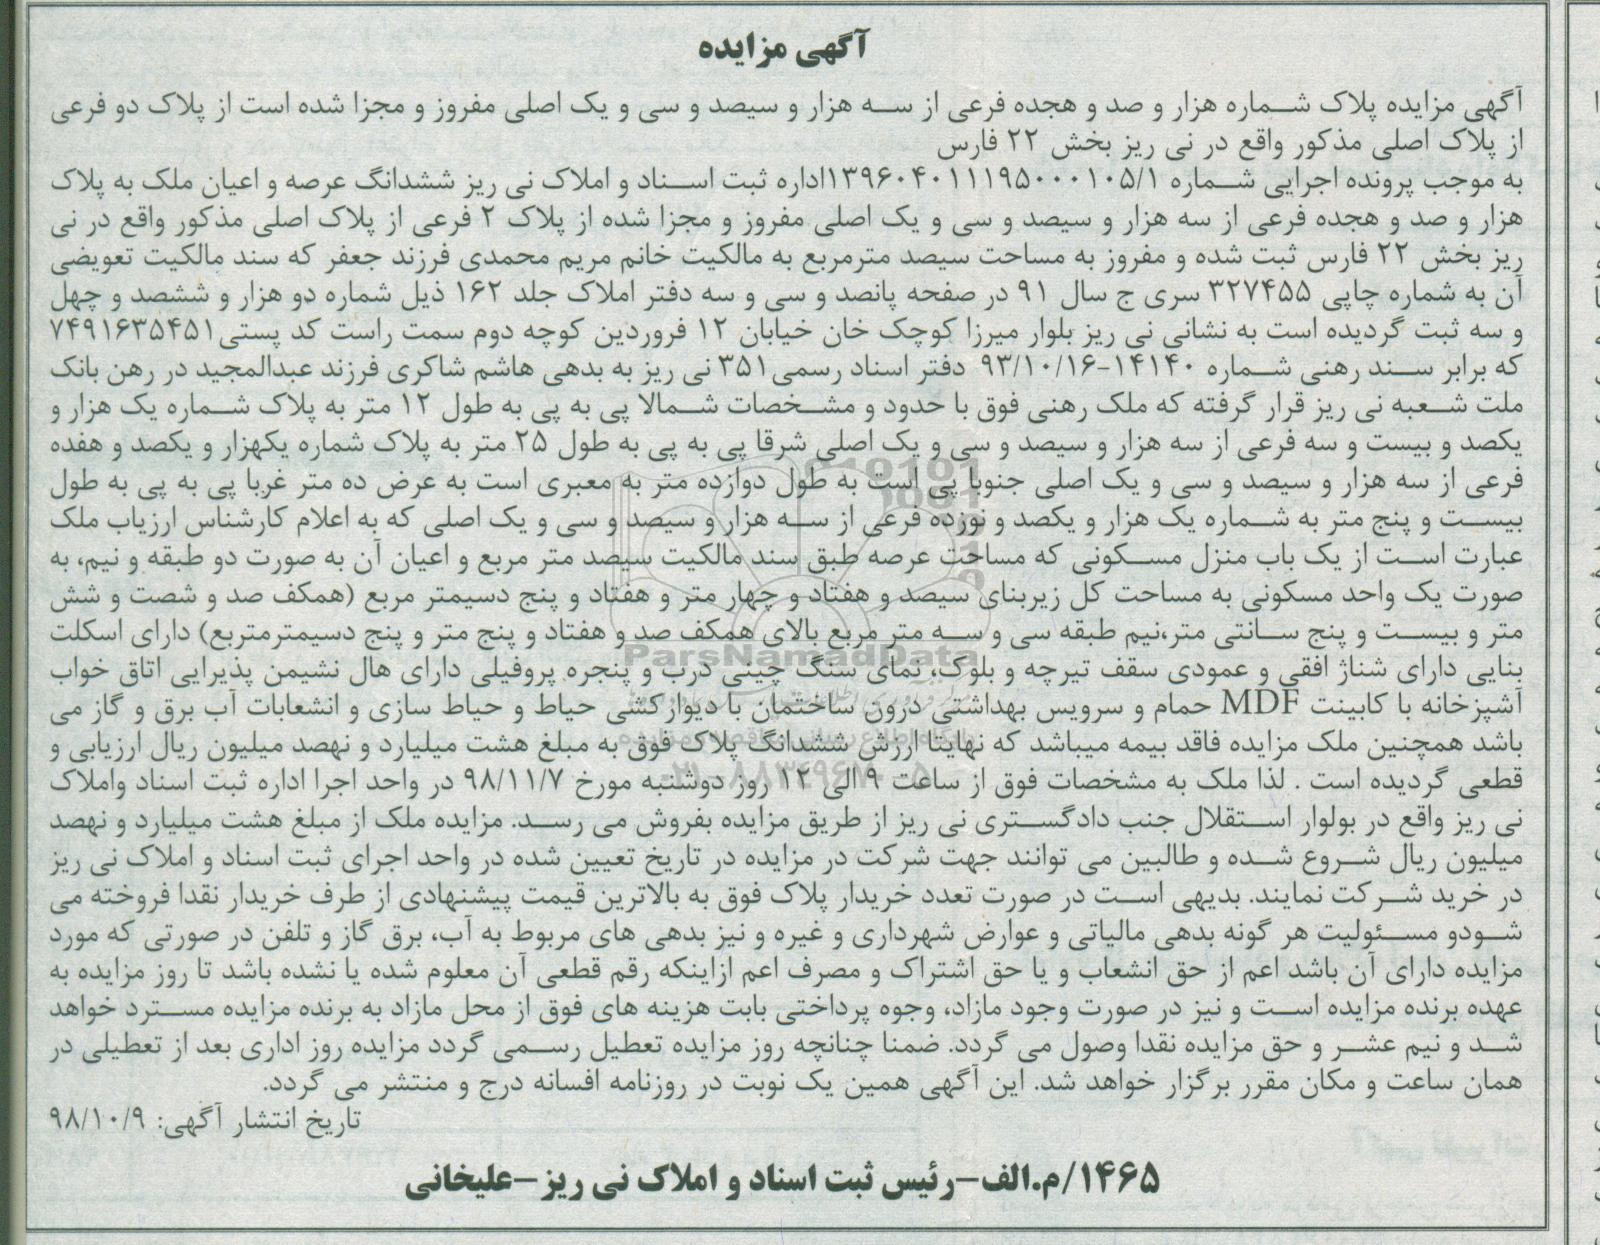 آگهی مزایده
آگهی مزایده پلاک شماره هزار و صد و هجده فرعی از سه هزار و سیصد و سی و یک اصلی مفروز و مجزا شده است از پلاک دو فرعی
از پلاک اصلی مذکور واقع در نی ریز بخش ۲۲ فارس
به موجب پرونده اجرایی شماره ۱۳۹۶۰۴۰۱۱۱۹۵۰۰۰۱۰۵/۱اداره ثبت اسناد و املاک نی ریز ششدانگ عرصه و اعیان ملک به پلاک
هزار و صد و هجده فرعی از سه هزار و سیصد و سی و یک اصلی مفروز و مجزا شده از پلاک ۲ فرعی از پلاک اصلی مذکور واقع در نی
ریز بخش ۲۲ فارس ثبت شده و مفروز به مساحت سیصد مترمربع به مالکیت خانم مریم محمدی فرزند جعفر که سند مالکیت تعویضی
آن به شماره چاپی ۳۲۷۴۵۵ سری ج سال ۹۱ در صفحه پانصد و سی و سه دفتر املاک جلد ۱۶۲ ذیل شماره دو هزار و ششصد و چهل
و سه ثبت گردیده است به نشانی نی ریز بلوار میرزا کوچک خان خیابان ۱۲ فروردین کوچه دوم سمت راست کد پستی۷۴۹۱۶۳۵۴۵۱
که برابر سند رهنی شماره ۱۴۱۴۰-۹۳/۱۰/۱۶ دفتر اسناد رسمی۳۵۱ نی ریز به بدهی هاشم شاکری فرزند عبدالمجید در رهن بانک
ملت شعبه نی ریز قرار گرفته که ملک رهنی فوق با حدود و مشخصات شمالا پی به پی به طول ۱۲ متر به پلاک شماره یک هزار و
یکصد و بیست و سه فرعی از سه هزار و سیصد و سی و یک اصلی شرقا پی به پی به طول ۲۵ متر به پلاک شماره یکهزار و یکصد و هفده
فرعی از سه هزار و سیصد و سی و یک اصلی جنوبا پی است به طول دوازده متر به معبری است به عرض ده متر غربا پی به پی به طول
بیست و پنج متر به شماره یک هزار و یکصد و نوزده فرعی از سه هزار و سیصد و سی و یک اصلی که به اعلام کارشناس ارزیاب ملک
عبارت است از یک باب منزل مسکونی که مساحت عرصه طبق سند مالکیت سیصد متر مربع و اعیان آن به صورت دو طبقه و نیم، به
صورت یک واحد مسکونی به مساحت کل زیربنای سیصد و هفتاد و چهار متر و هفتاد و پنج دسیمتر مربع (همکف صد و شصت و شش
متر و بیست و پنج سانتی متر،نیم طبقه سی و سه متر مربع بالای همکف صد و هفتاد و پنج متر و پنج دسیمترمتربع) دارای اسکلت
بنایی دارای شناژ افقی و عمودی سقف تیرچه و بلوک، نمای سنگ چینی درب و پنجره پروفیلی دارای هال نشیمن پذیرایی اتاق خواب
آشپزخانه با کابینت MDF حمام و سرویس بهداشتی درون ساختمان با دیوارکشی حیاط و حیاط سازی و انشعابات آب برق و گاز می
باشد همچنین ملک مزایده فاقد بیمه میباشد که نهایتا ارزش ششدانگ پلاک فوق به مبلغ هشت میلیارد و نهصد میلیون ریال ارزیابی و
قطعی گردیده است . لذا ملک به مشخصات فوق از ساعت ۹ الی ۱۲ روز دوشنبه مورخ ۹۸/۱۱/۷ در واحد اجرا اداره ثبت اسناد واملاک
نی ریز واقع در بولوار استقلال جنب دادگستری نی ریز از طریق مزایده بفروش می رسد. مزایده ملک از مبلغ هشت میلیارد و نهصد
میلیون ریال شروع شده و طالبین می توانند جهت شرکت در مزایده در تاریخ تعیین شده در واحد اجرای ثبت اسناد و املاک نی ریز
در خرید شرکت نمایند. بدیهی است در صورت تعدد خریدار پلاک فوق به بالاترین قیمت پیشنهادی از طرف خریدار نقدا فروخته می
شودو مسئولیت هر گونه بدهی مالیاتی و عوارض شهرداری و غیره و نیز بدهی های مربوط به آب، برق گاز و تلفن در صورتی که مورد
مزایده دارای آن باشد اعم از حق انشعاب و یا حق اشتراک و مصرف اعم ازاینکه رقم قطعی آن معلوم شده یا نشده باشد تا روز مزایده به
عهده برنده مزایده است و نیز در صورت وجود مازاد، وجوه پرداختی بابت هزینه های فوق از محل مازاد به برنده مزایده مسترد خواهد
شد و نیم عشر و حق مزایده نقدا وصول می گردد. ضمنا چنانچه روز مزایده تعطیل رسمی گردد مزایده روز اداری بعد از تعطیلی در
همان ساعت و مکان مقرر برگزار خواهد شد. این آگهی همین یک نوبت در روزنامه افسانه درج و منتشر می گردد.
تاریخ انتشار آگهی: ۹۸/۱۰/۹
۱۴۶۵/م.الف-رئیس ثبت اسناد و املاک نی ریز-علیخانی
ParsNamadData